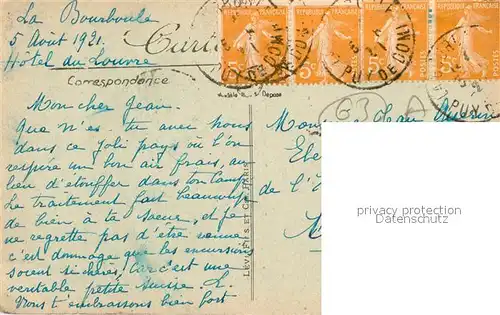 La Bourboule
5 Aout 1921
Hôtel du Louvre
Carte
Correspondance
Mon cher Jean.
Que n'es-tu avec nous
dans ce joli pays où l'on
respire un bon air frais, au
lieu d'étouffer dans ton Camp
Le traitement fait beaucoup
de bien à ta soeur, et je
ne regrette pas d'être venue
c'est dommage que les excursions
soient si chères, car c'est une
veritable petite Suisse.
Nous t'embrassons bien fort
Jean
de l'
LÉVY FILS ET CIE PARIS
5c 5c 5c 5c
PUY DE DOME
PUY DE DOME
privacy protection
Datenschutz